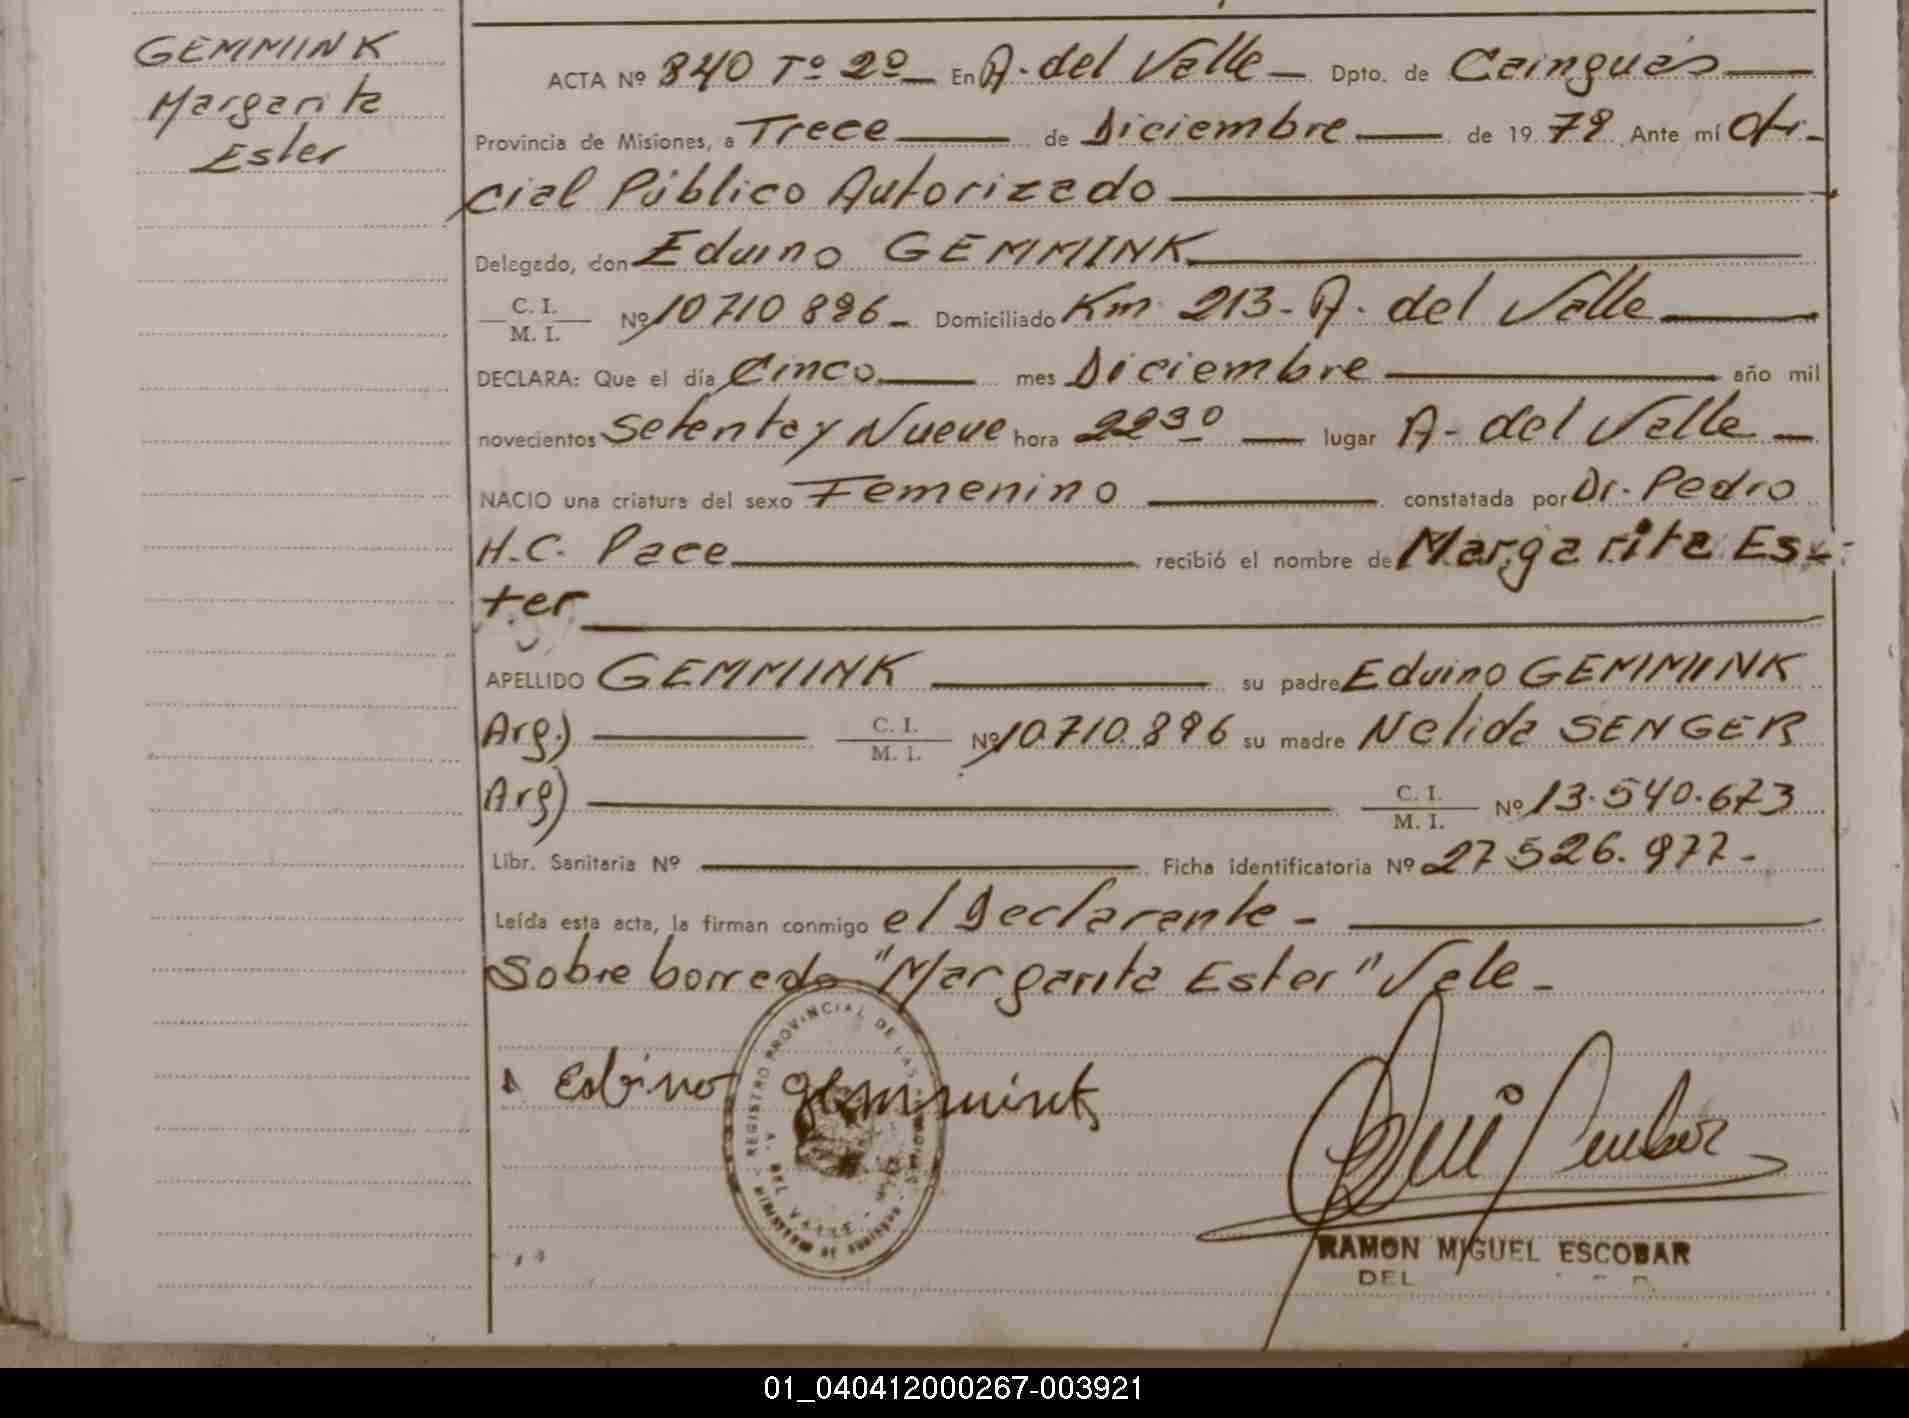 GEMMINK
Margarita
Ester
ACTA Nº 840 Tº 2º En A. del Valle Dpto. de Cainguás
Provincia de Misiones, a Trece de Diciembre de 1979 Ante mí Ofi-
cial Público Autorizado
Delegado, don Eduino GEMMINK
C. I.
M. I. Nº 10710896 Domiciliado Km 213 - A. del Valle
DECLARA: Que el día Cinco mes Diciembre año mil
novecientos Setenta y Nueve hora 22 30 lugar A- del Valle
NACIO una criatura del sexo Femenino constatada por Dr. Pedro
H.C. Pace recibió el nombre de Margarita Es-
ter
APELLIDO GEMMINK su padre Eduino GEMMINK
Arg) C. I.
M. I. Nº 10.710.896 su madre Nelida SENGER
Arg) C. I.
M. I. Nº 13.540.673
Libr. Sanitaria Nº Ficha identificatoria Nº 27526.977-
Leída esta acta, la firman conmigo el Declarante -
Sobre borrado "Margarita Ester" Vale -
Edvino gemmink
REGISTRO PROVINCIAL DE LAS
A. DEL VALLE
MINISTERIO DE GOBIERNO
RAMON MIGUEL ESCOBAR
DEL
01_040412000267-003921